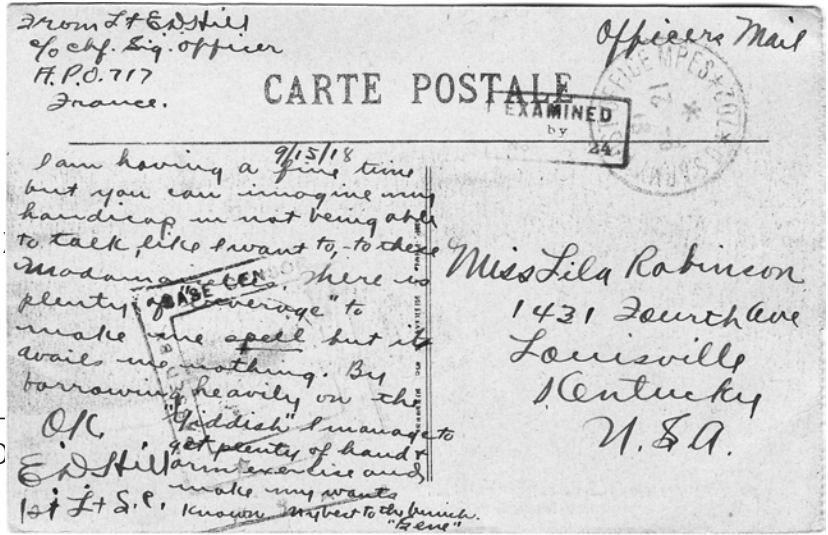 From Lt ED Hill
c/o chf. Sig. officer
A.P.O. 717
France.
Officers Mail
CARTE POSTALE
EXAMINED
by
24
9/15/18
I am having a fine time
but you can imagine my
handicap in not being able
to talk, like I want to, - to these
There is
plenty of "beverage" to
make me spell but it
avails me nothing. By
borrowing heavily on the
"Yiddish" I manage to
get plenty of hand &
arm exercise and
make my wants
known My best to the bunch.
"Gene"
BASE CENSOR
OK
ED Hill
1st Lt S.C.
Miss Lila Robinson
1431 Fourth Ave
Louisville
Kentucky
U.S.A.